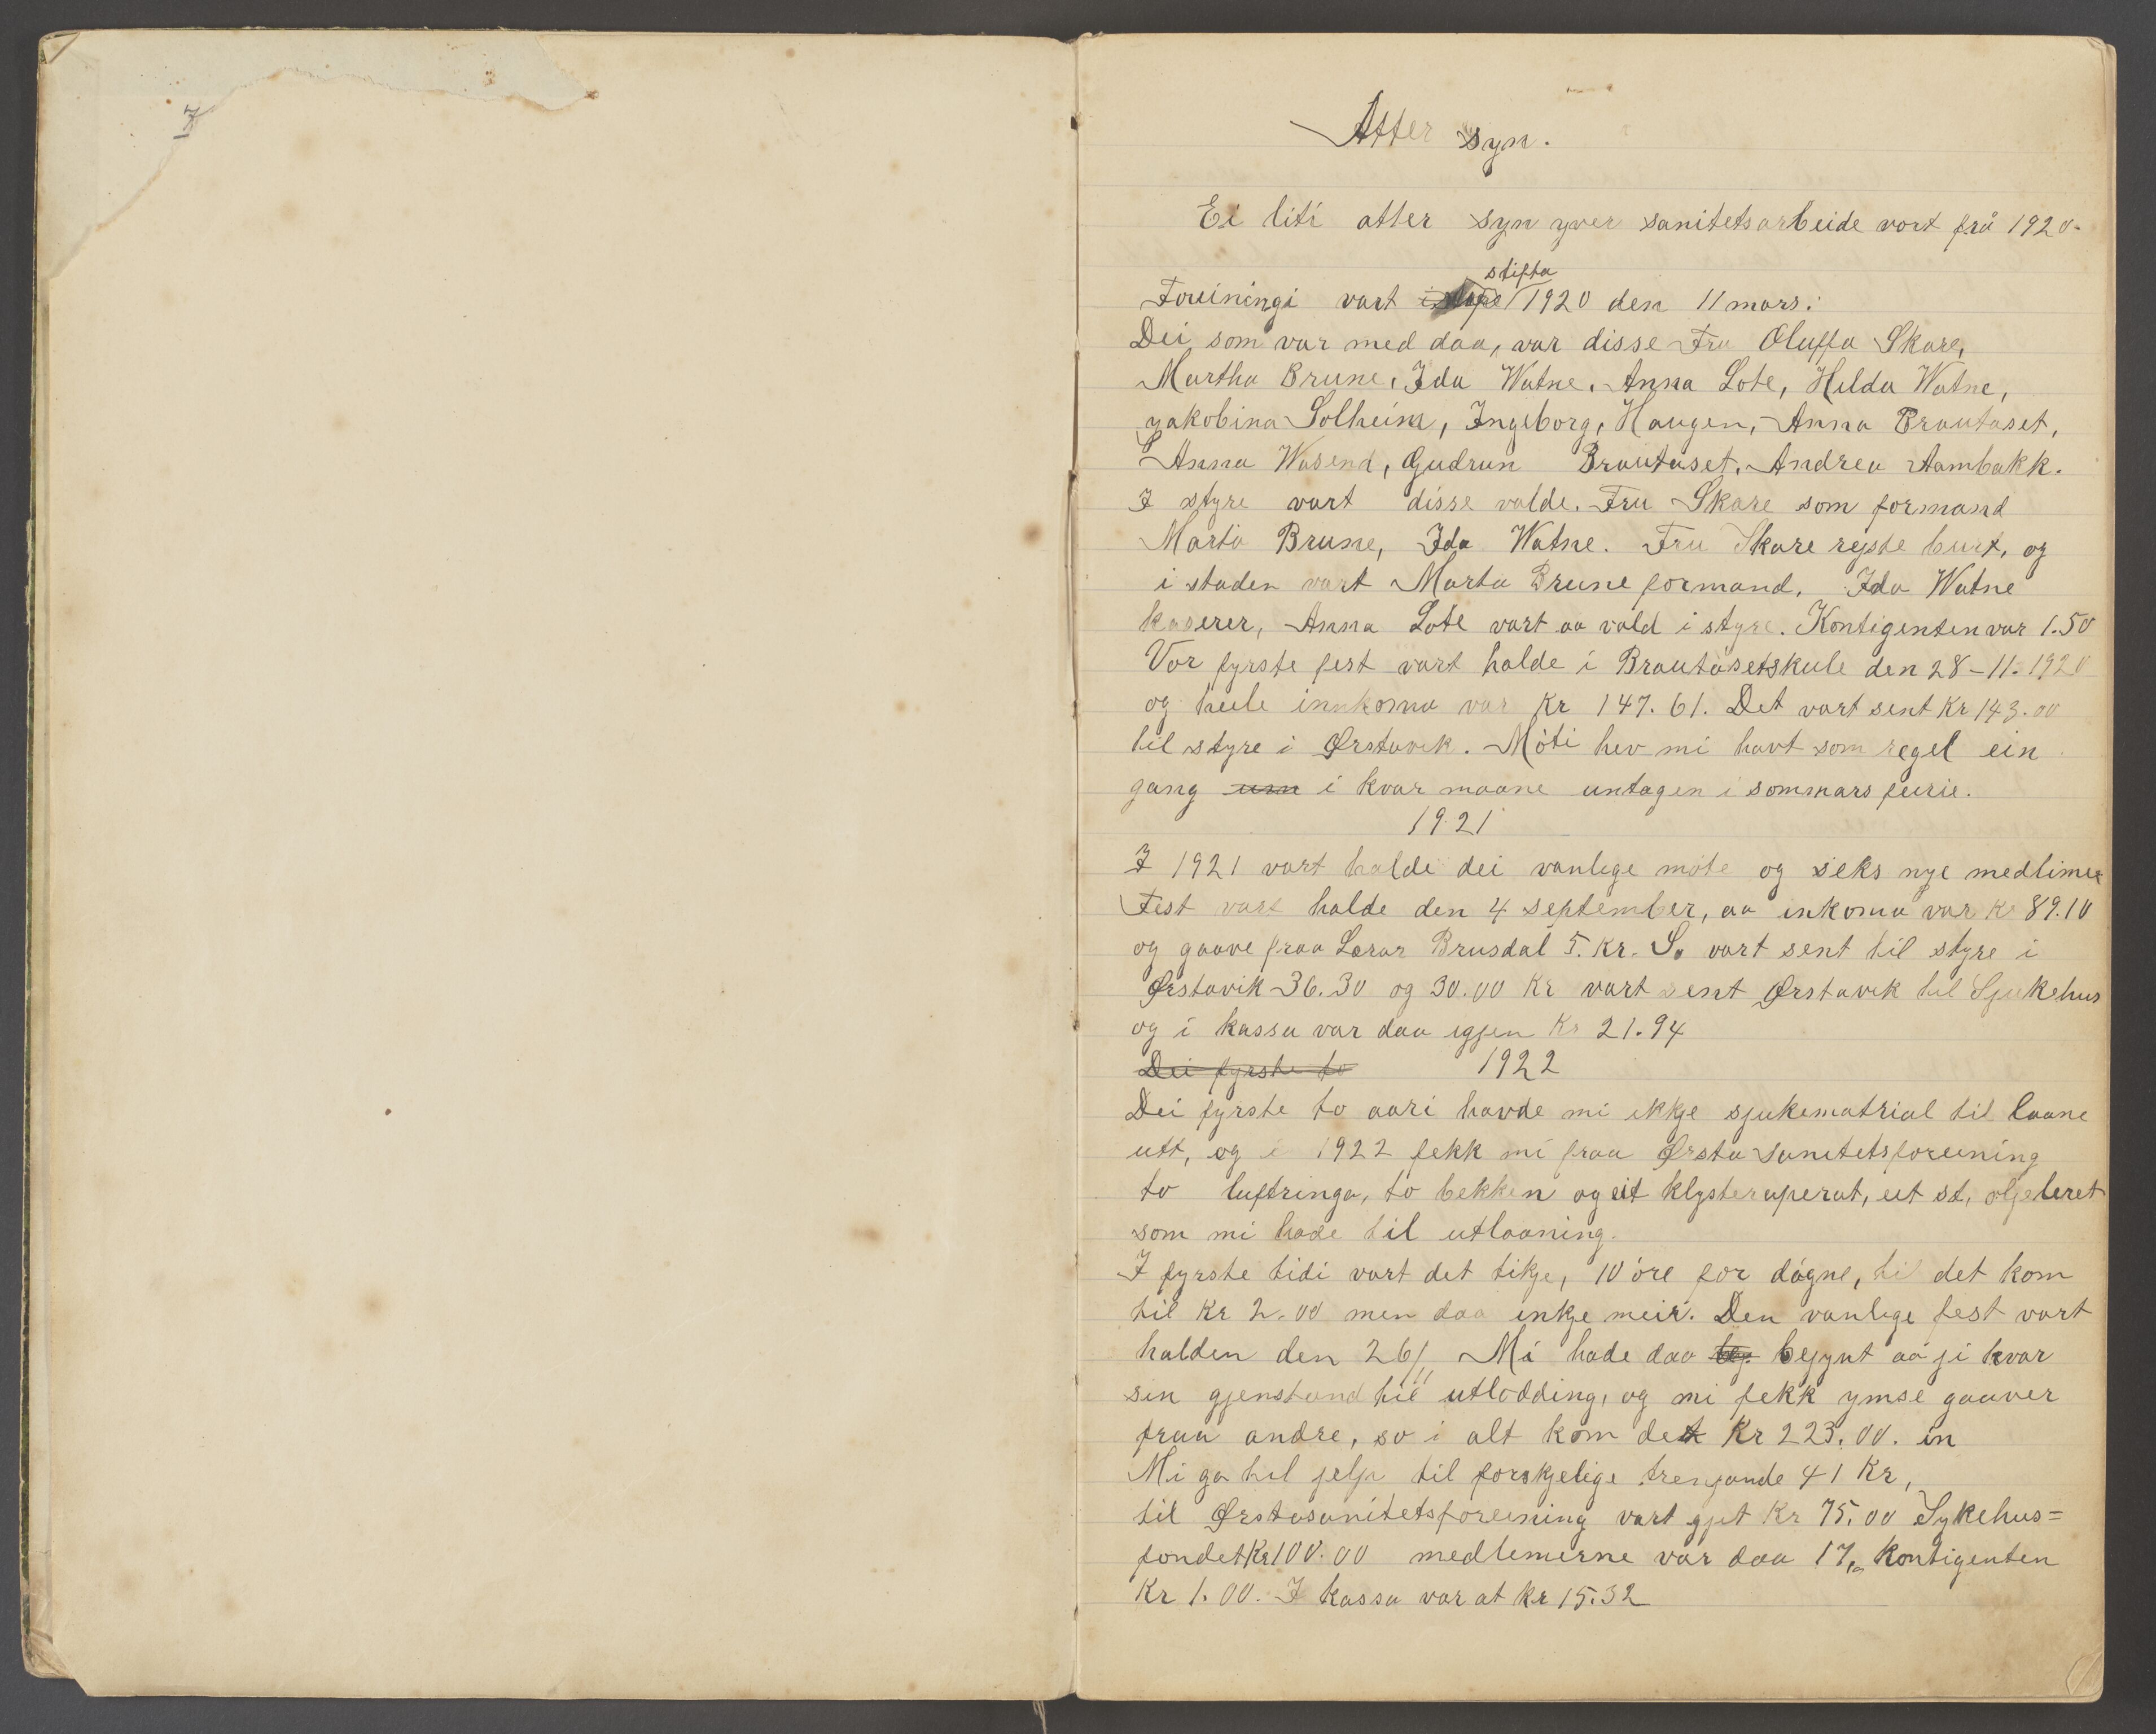 7
Atter syn.
Ei liti atter syn yver sanitetsarbeide vort frå 1920.
stifta
Foreiningi vart 1920 den 11 mars.
Dei som var med daa, var disse Fru Oluffa Skare,
Martha Brune, Ida Watne, Anna Lote, Hilda Watne,
yakobina Solheim, Ingeborg, Haugen, Anna Brautaset,
Anna Wasend, Gudrun Brautaset, Andrea Aambakk.
I styre vart disse valde. Fru Skare som formand
Marta Brune, Ida Watne. Fru Skare reyste burt, og
i staden vart Marta Brune formand, Ida Watne
kaserer, Anna Lote vart aa vald i styre. Kontigenten var 1.50
Vor fyrste fest vart halde i Brautasetskule den 28-11-1920
og heile innkoma var Kr 147.61. Det vart sent Kr 143.00
til styre i Ørstavik. Möti hev mi havt som regel ein
gang um i kvar maane untagen i sommars feirie.
1921
I 1921 vart halde dei vanlege möte og seks nye medlimer
Fest vart halde den 4 september, aa inkoma var Kr 89.10
og gaave fraa Lærar Brusdal 5. Kr. So vart sent til styre i
Ørstavik 36.30 og 30.00 Kr vart sent Ørstavik til Sjukehus
og i kassa var daa igjen Kr 21.94
Dei fyrste to 1922
Dei fyrste to aari havde mi ikkje sjukematrial til laane
utt, og i 1922 fekk mi fraa Ørsta Sanitetsforeining
to luftringa, to bekken og eit klysteraperat, eit st, oljeleret
som mi hade til utlaaning.
I fyrste tidi vart det tikje, 10 öre for dögne, til det kom
til Kr 2.00 men daa inkje meir. Den vanlege fest vart
halden den 26/11 Mi hade daa bej. bejynt aa ji kvar
sin gjenstand til utlodding, og mi fekk ymse gaaver
fraa andre, so i alt kom det Kr 223.00. in
Mi ga til jelp til forskjelige trenjande 41 Kr,
til Ørstasanitetsforeining vart gjet Kr 75.00 Sykehus=
fondet Kr 100.00 medlemerne var daa 17, Kontigenten
Kr 1.00. I kassa var at Kr 15.32